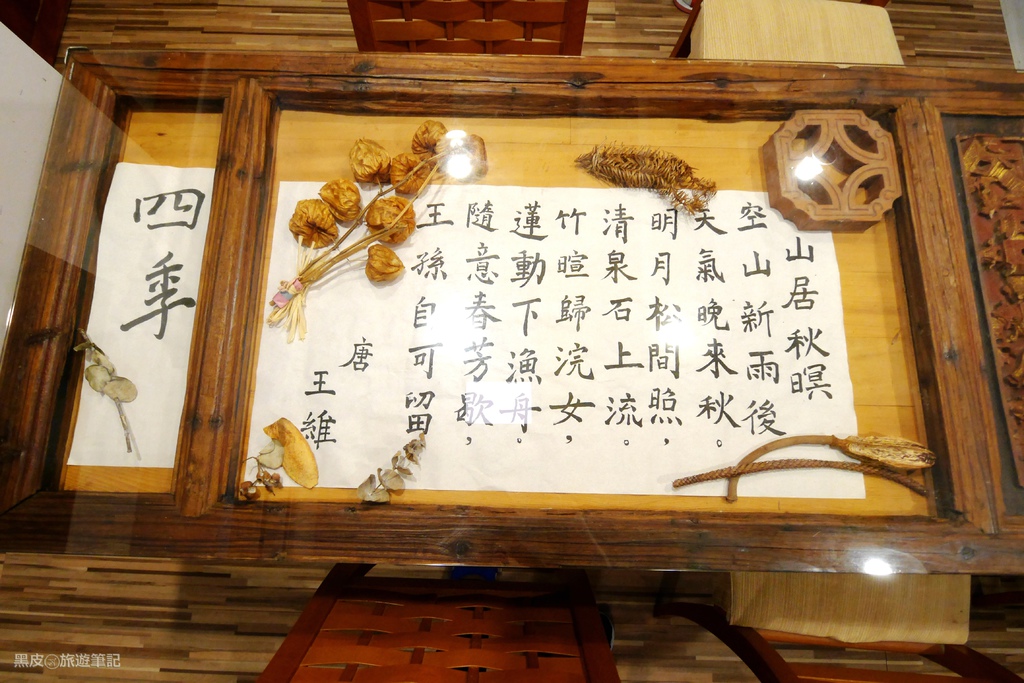 山居秋暝
空山新雨後
天氣晚來秋。
明月松間照，
清泉石上流。
竹喧歸浣女，
蓮動下漁舟。
隨意春芳歇，
王孫自可留
唐
王維
四季
黑皮旅遊筆記